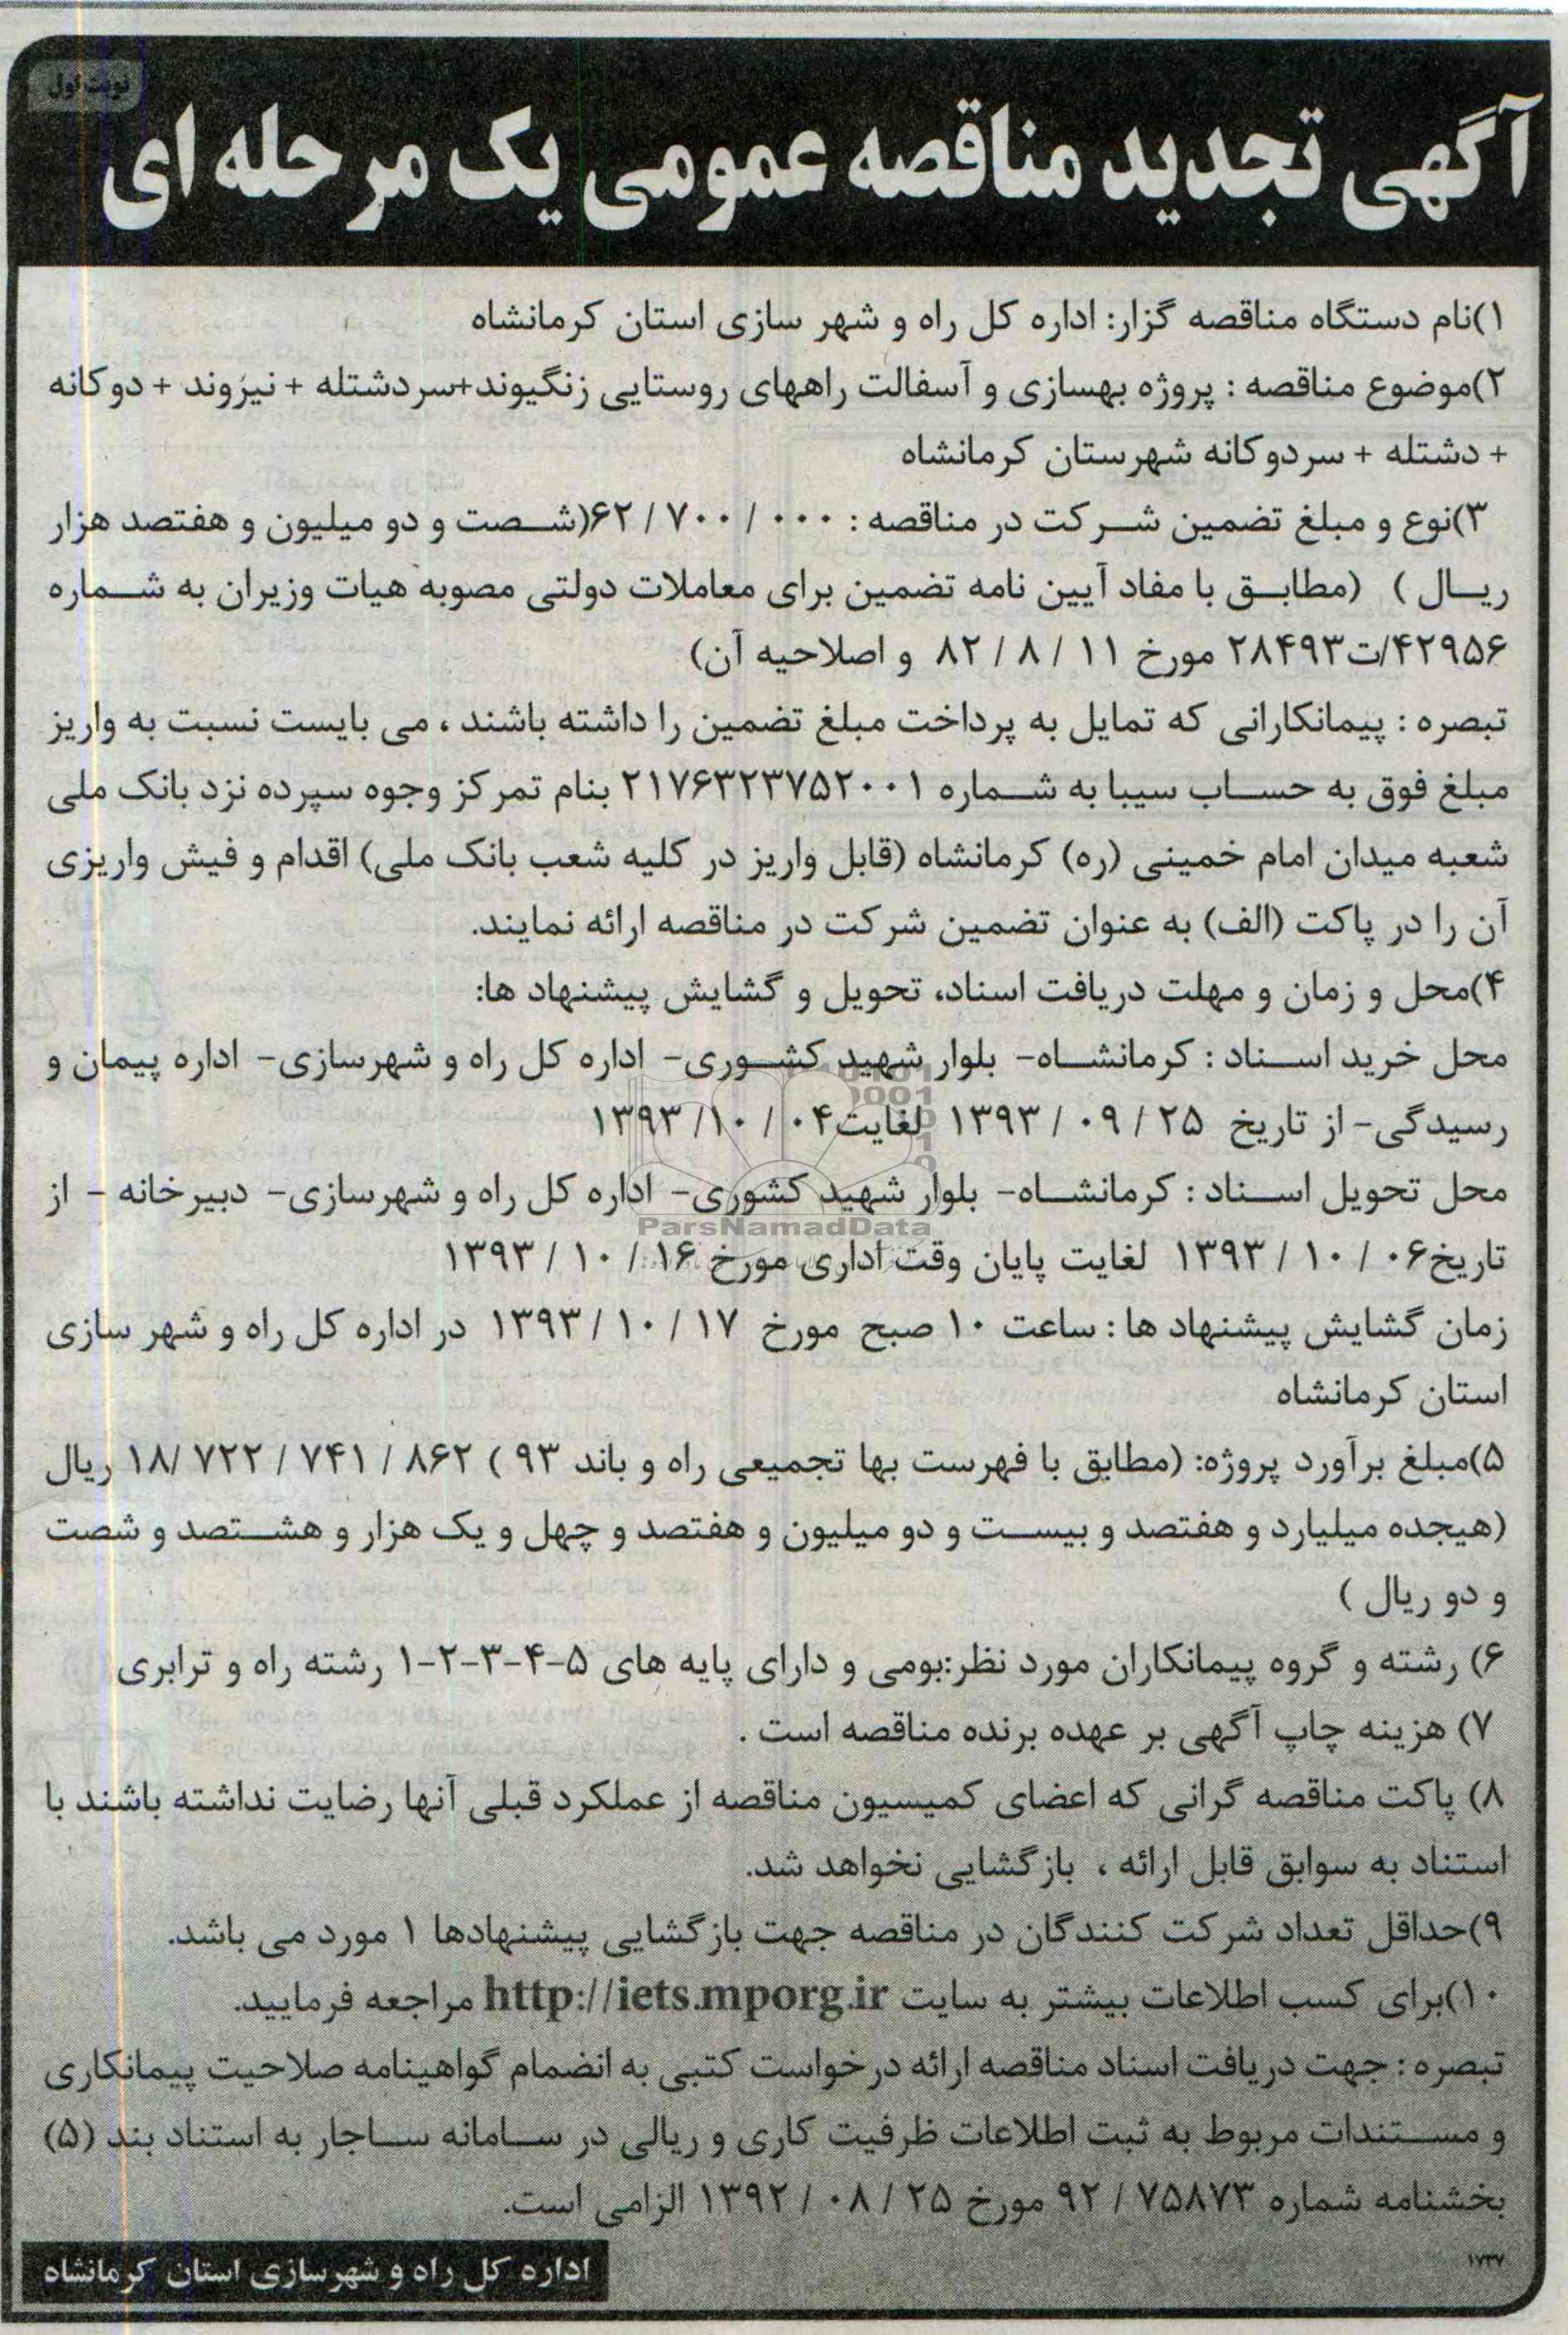 نوبت اول
آگهی تجدید مناقصه عمومی یک مرحله ای
۱)نام دستگاه مناقصه گزار: اداره کل راه و شهر سازی استان کرمانشاه
۲)موضوع مناقصه : پروژه بهسازی و آسفالت راههای روستایی زنگیوند+سردشتله + نیزوند + دوکانه
+ دشتله + سردوکانه شهرستان کرمانشاه
۳)نوع و مبلغ تضمین شرکت در مناقصه : ۶۲/۷۰۰/۰۰۰(شصت و دو میلیون و هفتصد هزار
ریال ) (مطابق با مفاد آیین نامه تضمین برای معاملات دولتی مصوبه هیات وزیران به شماره
۴۲۹۵۶/ت۲۸۴۹۳ مورخ ۱۱ / ۸ / ۸۲ و اصلاحیه آن)
تبصره : پیمانکارانی که تمایل به پرداخت مبلغ تضمین را داشته باشند ، می بایست نسبت به واریز
مبلغ فوق به حساب سیبا به شماره ۲۱۷۶۳۲۳۷۵۲۰۰۱ بنام تمرکز وجوه سپرده نزد بانک ملی
شعبه میدان امام خمینی (ره) کرمانشاه (قابل واریز در کلیه شعب بانک ملی) اقدام و فیش واریزی
آن را در پاکت (الف) به عنوان تضمین شرکت در مناقصه ارائه نمایند.
۴)محل و زمان و مهلت دریافت اسناد، تحویل و گشایش پیشنهاد ها:
محل خرید اسناد : کرمانشاه- بلوار شهید کشوری- اداره کل راه و شهرسازی- اداره پیمان و
رسیدگی- از تاریخ ۲۵ / ۰۹ / ۱۳۹۳ لغایت۰۴ / ۱۰/ ۱۳۹۳
محل تحویل اسناد : کرمانشاه- بلوار شهید کشوری- اداره کل راه و شهرسازی- دبیرخانه - از
تاریخ۰۶ / ۱۰ / ۱۳۹۳ لغایت پایان وقت اداری مورخ ۱۶ / ۱۰ / ۱۳۹۳
زمان گشایش پیشنهاد ها : ساعت ۱۰ صبح مورخ ۱۷ / ۱۰ / ۱۳۹۳ در اداره کل راه و شهر سازی
استان کرمانشاه
۵)مبلغ برآورد پروژه: (مطابق با فهرست بها تجمیعی راه و باند ۹۳ ) ۸۶۲ / ۷۴۱ / ۷۲۲ /۱۸ ریال
(هیجده میلیارد و هفتصد و بیست و دو میلیون و هفتصد و چهل و یک هزار و هشتصد و شصت
و دو ریال )
۶) رشته و گروه پیمانکاران مورد نظر:بومی و دارای پایه های ۵-۴-۳-۲-۱ رشته راه و ترابری
۷) هزینه چاپ آگهی بر عهده برنده مناقصه است .
۸) پاکت مناقصه گرانی که اعضای کمیسیون مناقصه از عملکرد قبلی آنها رضایت نداشته باشند با
استناد به سوابق قابل ارائه ، بازگشایی نخواهد شد.
۹)حداقل تعداد شرکت کنندگان در مناقصه جهت بازگشایی پیشنهادها ۱ مورد می باشد.
۱۰)برای کسب اطلاعات بیشتر به سایت http://iets.mporg.ir مراجعه فرمایید.
تبصره : جهت دریافت اسناد مناقصه ارائه درخواست کتبی به انضمام گواهینامه صلاحیت پیمانکاری
و مستندات مربوط به ثبت اطلاعات ظرفیت کاری و ریالی در سامانه ساجار به استناد بند (۵)
بخشنامه شماره ۷۵۸۷۳ / ۹۲ مورخ ۲۵ / ۰۸ / ۱۳۹۲ الزامی است.
۱۷۳۷
اداره کل راه و شهرسازی استان کرمانشاه
ParsNamadData